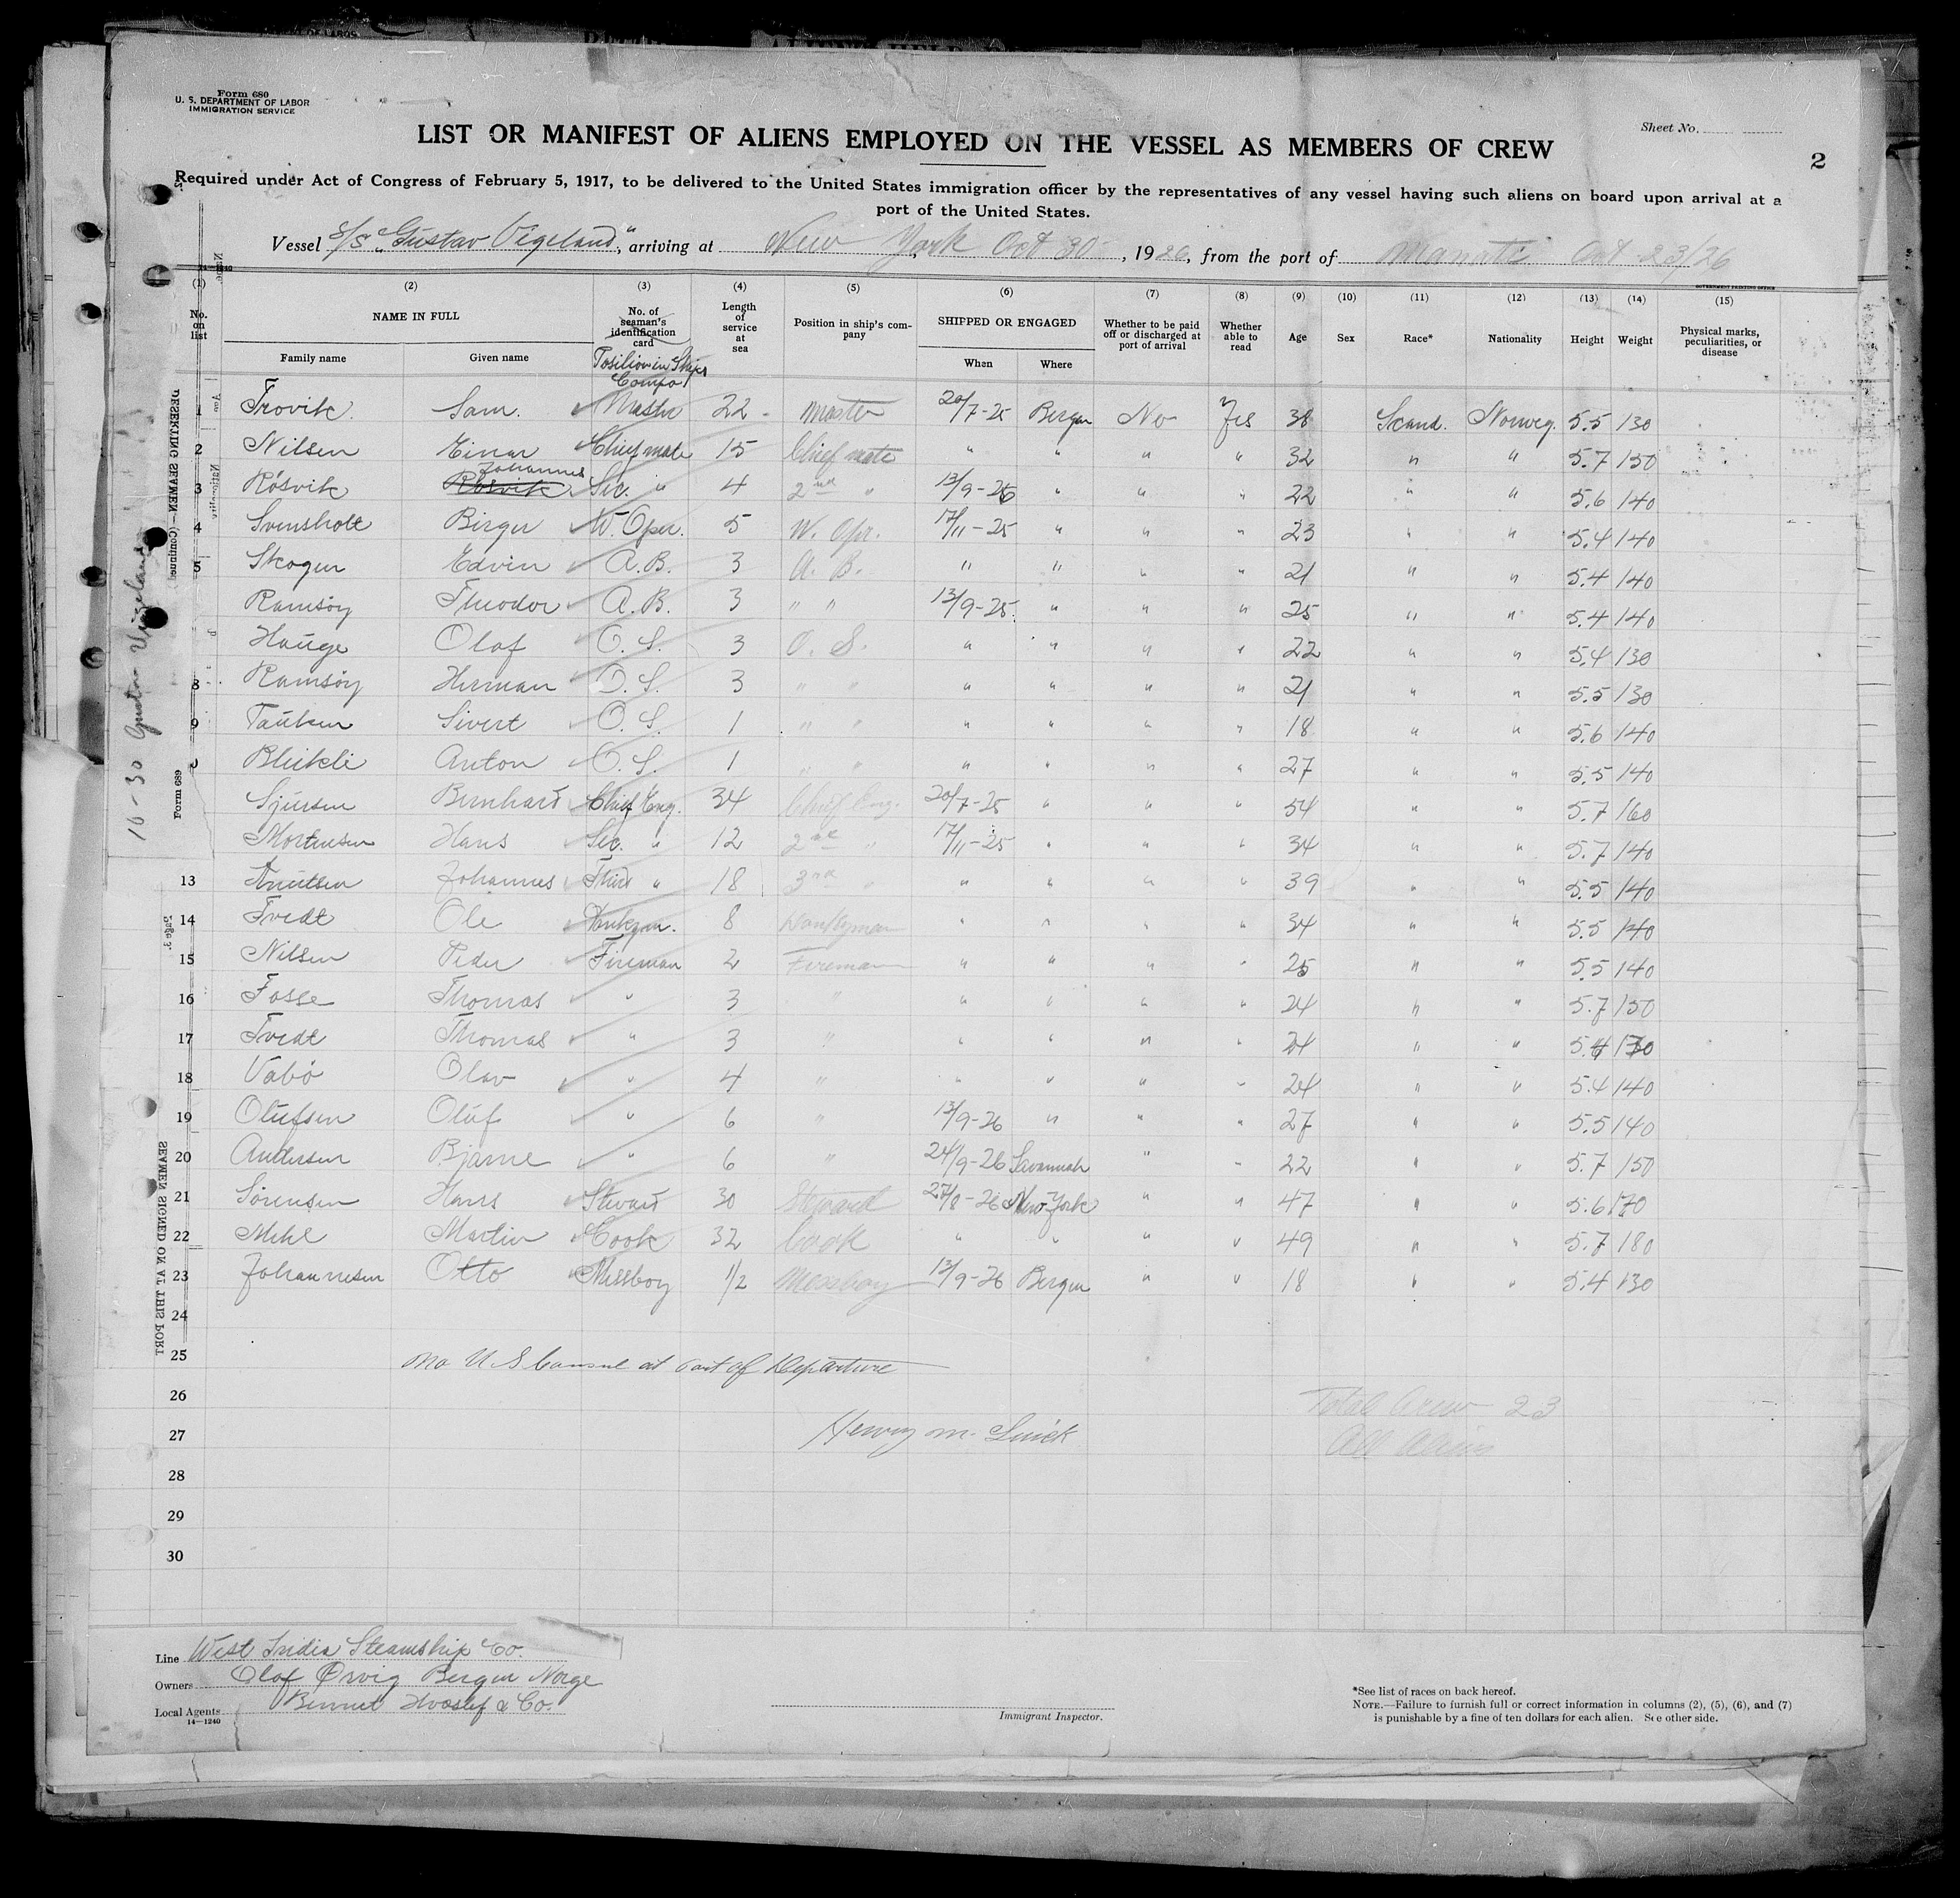 Form 680
U. S. DEPARTMENT OF LABOR
IMMIGRATION SERVICE
Sheet No.
LIST OR MANIFEST OF ALIENS EMPLOYED ON THE VESSEL AS MEMBERS OF CREW
2
Required under Act of Congress of February 5, 1917, to be delivered to the United States immigration officer by the representatives of any vessel having such aliens on board upon arrival at a
port of the United States.
Vessel S/S "Gustav Vigeland", arriving at New York Oct 30, 1926, from the port of Manati Oct 23/26
(1) (2) (3) (4) (5) (6) (7) (8) (9) (10) (11) (12) (13) (14) (15)
No. on list NAME IN FULL Family name Given name No. of seaman's identification card Position in Ships Compa Length of service at sea Position in ship's company SHIPPED OR ENGAGED When Where Whether to be paid off or discharged at port of arrival Whether able to read Age Sex Race* Nationality Height Weight Physical marks, peculiarities, or disease
1 Trovik Sam. Master 22 Master 20/7-25 Bergen No Yes 38 Scand. Norweg. 5.5 130
2 Nilsen Einar Chief mate 15 Chief mate " " " " 32 " " 5.7 150
3 Rösvik Rösvik Johannes Sec. " 4 2nd " 13/9-26 " " " 22 " " 5.6 140
4 Svensholt Birger W. Oper. 5 W. Opr. 17/11-25 " " " 23 " " 5.4 140
5 Skogen Edvin A.B. 3 A. B. " " " " 21 " " 5.4 140
Ramsöy Theodor A.B. 3 " " 13/9-25 " " " 25 " " 5.4 140
Hauge Olaf O.S. 3 O. S. " " " " 22 " " 5.4 130
8 Ramsöy Herman O.S. 3 " " " " " " 21 " " 5.5 130
9 Sivert O.S. 1 " " " " " " 18 " " 5.6 140
Bleikli Anton O.S. 1 " " " " " " 27 " " 5.5 140
Sjursen Bernhard Chief Eng. 34 Chief Eng. 20/7-25 " " " 54 " " 5.7 160
Mortensen Hans Sec. " 12 2nd " 17/11-25 " " " 34 " " 5.7 140
13 Knutsen Johannes Third " 18 3rd " " " " " 39 " " 5.5 140
14 Tvedt Ole Donkym. 8 Donkyman " " " " 34 " " 5.5 140
15 Nilsen Peder Fireman 2 Fireman " " " " 25 " " 5.5 140
16 Fosse Thomas " 3 " " " " " 24 " " 5.7 150
17 Tvedt Thomas " 3 " " " " " 24 " " 5.4 130
18 Vabö Olav " 4 " " " " " 24 " " 5.4 140
19 Olufsen Oluf " 6 " 13/9-26 " " " 27 " " 5.5 140
20 Andersen Bjarne " 6 " 24/9-26 Savannah " " 22 " " 5.7 150
21 Sörensen Hans Stuard 30 Steward 27/8-26 New York " " 47 " " 5.6 170
22 Mehl Martin Cook 32 Cook " " " " 49 " " 5.7 180
23 Johannesen Otto Messboy 1/2 Messboy 13/9-26 Bergen " " 18 " " 5.4 130
24
25 No U S Consul at port of Departure
26 Total Crew 23
27 Henry M. All Aliens
28
29
30
Line West India Steamship Co.
Owners Olaf Ørvig Bergen Norge
Local Agents Bennet Hvoslef & Co.
14—1240
Immigrant Inspector.
*See list of races on back hereof.
NOTE.—Failure to furnish full or correct information in columns (2), (5), (6), and (7)
is punishable by a fine of ten dollars for each alien. See other side.
10-30 Gustav Vigeland
DESERTING SEAMEN (Continued)
Form 689
Page 3.
SEAMEN SIGNED ON AT THIS PORT